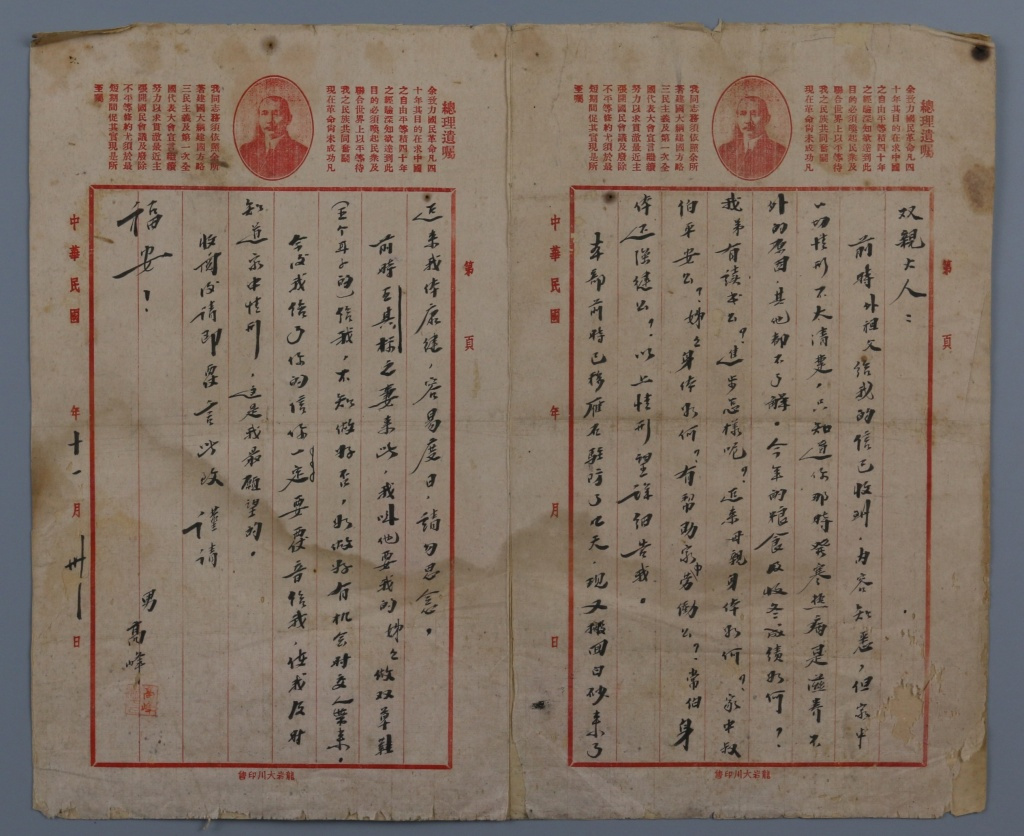 總理遺囑
余致力國民革命凡四
十年其目的在求中國
之自由平等積四十年
之經驗深知欲達到此
目的必須喚起民眾及
聯合世界上以平等待
我之民族共同奮鬭
現在革命尚未成功凡
我同志務須依照余所
著建國大綱建國方略
三民主義及第一次全
國代表大會宣言繼續
努力以求貫澈最近主
張開國民會議及廢除
不平等條約尤須於最
短期間促其實現是所
至囑
第 頁
双親大人：
前時外祖父信我的信已收到，内容知悉，但家中
一切情形不太清楚，只知道你那時發寒热病是滋养不
外的原因，其他都不了解。今年的粮食及收冬成績如何？
我弟有读书么？進步怎樣呢？近来母親身体如何？家中叔
伯平安么？姊々身体如何？有帮助家中劳働么？常伯身
体还强健么？以上情形望詳细告我。
本部前時已移雁石駐防了几天，现又搬回白砂来了
中華民國 年 月 日
龍岩大川印務
總理遺囑
余致力國民革命凡四
十年其目的在求中國
之自由平等積四十年
之經驗深知欲達到此
目的必須喚起民眾及
聯合世界上以平等待
我之民族共同奮鬭
現在革命尚未成功凡
我同志務須依照余所
著建國大綱建國方略
三民主義及第一次全
國代表大會宣言繼續
努力以求貫澈最近主
張開國民會議及廢除
不平等條約尤須於最
短期間促其實現是所
至囑
第 頁
近来我体康健，容易度日，請勿思念。
前時王其标之妻来此，我叫他要我的姊々做双草鞋
耳子的信我，不知做好否，如做好有机会时交人带来，
今后我信了你的信你一定要覆音信我，使我及时
知道家中情形，这是我最願望的。
收閱后請即覆言此致 謹請
福安！
男 高峰
中華民國 年十一月卅一日
龍岩大川印務